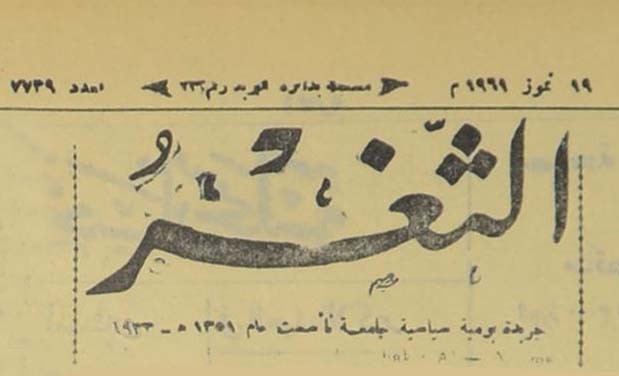 ١٩ تموز ١٩٦٩ م مسجلة بدائرة البريد رقم ٢٣٦ العدد ٧٧٣٩
الثَّغْرُ
جريدة يومية سياسية جامعة تأسست عام ١٣٥١ ه ـ ١٩٣٣